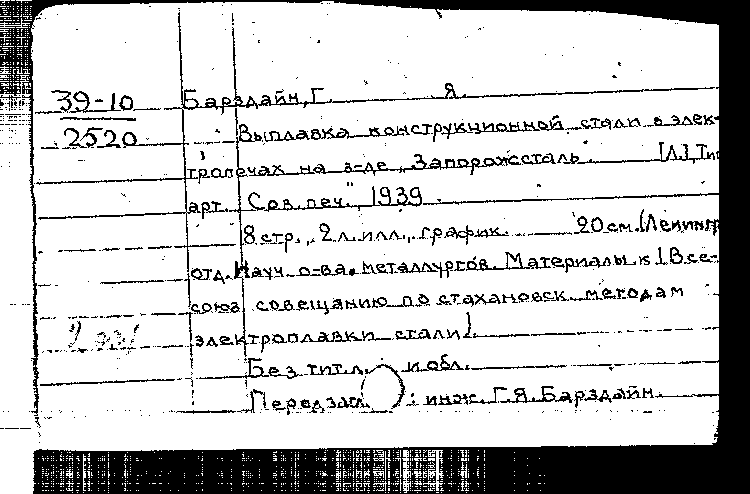 39-10
2520
Барздайн, Г. Я.
Выплавка конструкционной стали в элек-
тропечах на з-де „Запорожсталь". [Л.], Тип.
арт. „Сов. печ.", 1939.
8 стр., 2 л. илл., график. 20 см. (Ленингр.
отд. Науч. о-ва металлургов. Материалы к I Все-
союз. совещанию по стахановск. методам
электроплавки стали).
Без тит. л. и обл.
Перед загл.: инж. Г. Я. Барздайн.
2 экз